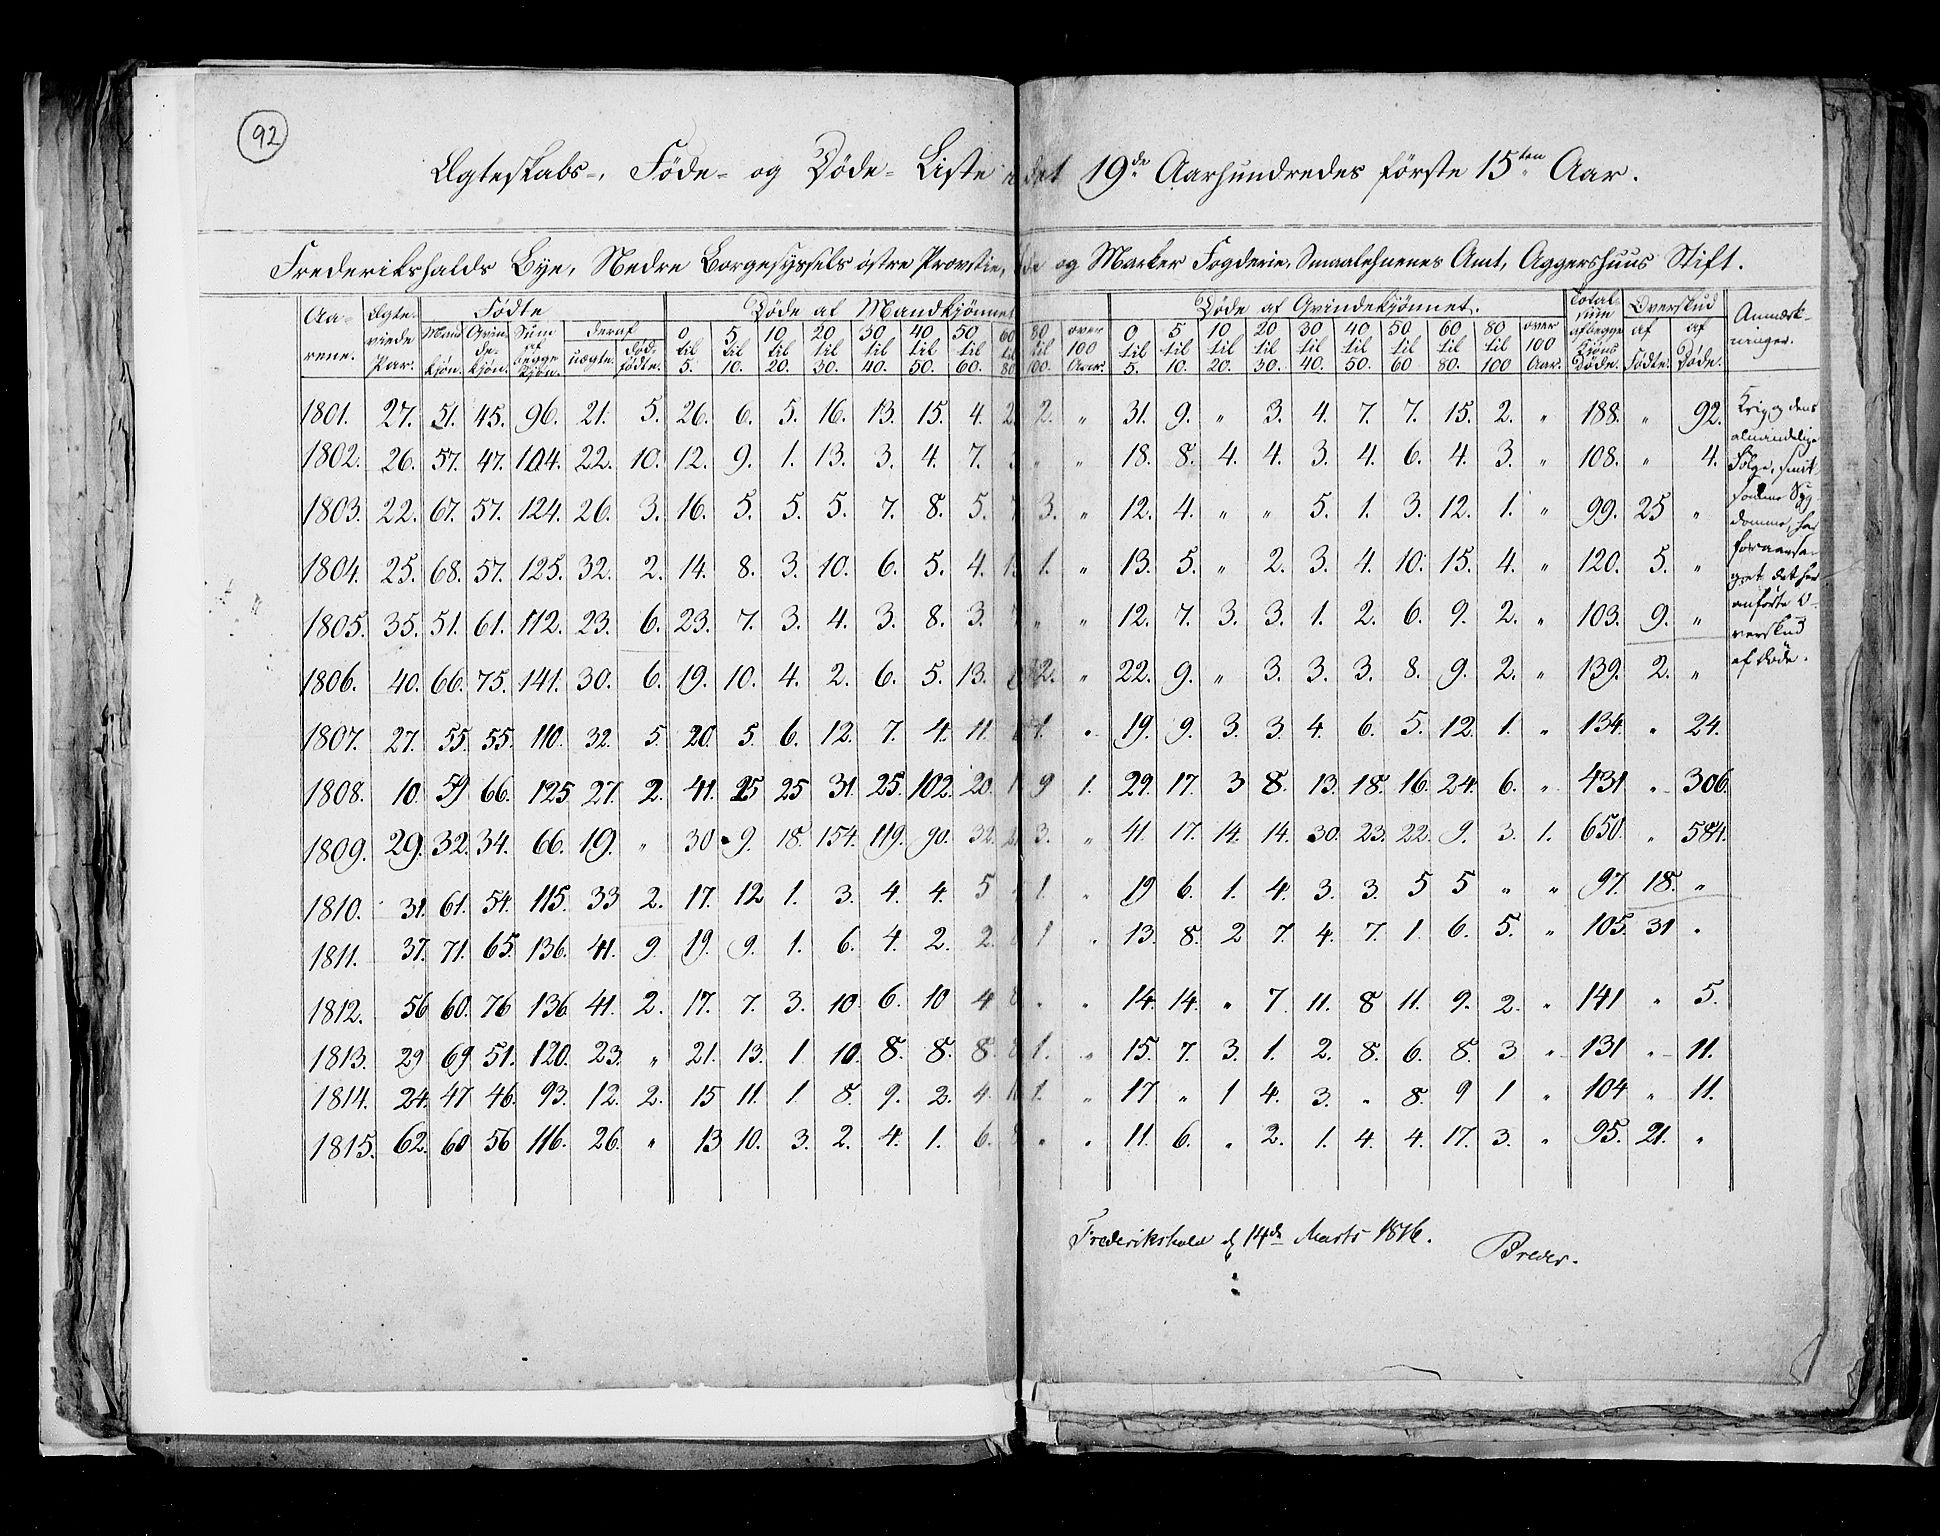 92
Ægteskabs-, Føde- og Døde- Liste i det 19de Aarhundredes første 15ten Aar.
Frederikshalds Bye, Nedre Borgesyssels østre Provstie, og Marker Fogderie, Smaalehnenes Amt, Aggershuus Stift.
Aa- Ægte- Fødte Døde af Mandkjønnet Døde af Qvindekjønnet. Total- Overskud Anmærk-
rene. viede Par. Mand- kjøn. Qvin- de- kjøn. Sum af begge Kjøn. deraf uægte. død- fødte. 0 til 5. 5 til 10. 10 til 20. 20 til 30. 30 til 40. 40 til 50. 50 til 60. 60 til 80 80 til 100. over 100 Aar. 0 til 5. 5 til 10. 10 til 20. 20 til 30. 30 til 40. 40 til 50. 50 til 60 60 til 80. 80 til 100 over 100 Aar. sum af begge Kjøns Døde. af Fødte. af Døde. ninger.
1801. 27. 51. 45. 96. 21. 5. 26. 6. 5. 16. 13. 15. 4. 2. „ 31. 9. „ 3. 4. 7. 7. 15. 2. „ 188. „ 92.
1802. 26. 57. 47. 104. 22. 10. 12. 9. 1. 13. 3. 4. 7. „ „ 18. 8. 4. 4. 3. 4. 6. 4. 3. „ 108. „ 4.
1803. 22. 67. 57. 124. 26. 3. 16. 5. 5. 5. 7. 8. 5. 3. „ 12. 4. „ „ 5. 1. 3. 12. 1. „ 99. 25 „
1804. 25. 68. 57. 125. 32. 2. 14. 8. 3. 10. 6. 5. 4. 1. „ 13. 5. „ 2. 3. 4. 10. 15. 4. „ 120. 5. „
1805. 35. 51. 61. 112. 23. 6. 23. 7. 3. 4. 3. 8. 3. „ „ 12. 7. 3. 3. 1. 2. 6. 9. 2. „ 103. 9. „
1806. 40. 66. 75. 141. 30. 6. 19. 10. 4. 2. 6. 5. 13. 2. „ 22. 9. „ 3. 3. 3. 8. 9. 2. „ 139. 2. „
1807. 27. 55. 55. 110. 32. 5. 20. 5. 6. 12. 7. 4. 11. 1. „ 19. 9. 3. 3. 4. 6. 5. 12. 1. „ 134. „ 24.
1808. 10. 59 66. 125 27. 2. 41. 25 25 31. 25. 102. 20. 9 1. 29. 17. 3 8. 13. 18. 16. 24. 6. „ 431 „ 306.
1809. 29. 32. 34. 66. 19. „ 30 9. 18. 154. 119. 90. 32. 3. „ 41. 17. 14. 14. 30. 23. 22. 9. 3. 1. 650. „ 584.
1810. 31. 61. 54. 115. 33 2. 17. 12 1. 3. 4. 4. 5 1. „ 19 6. 1. 4. 3. 3. 5 5 „ „ 97. 18. „
1811. 37. 71. 65. 136. 41. 9. 19. 9. 1. 6. 4. 2. 2. 1 „ 13. 8. 2 7. 4. 7. 1. 6. 5. „ 105. 31 „
1812. 56 60. 76 136 41. 2. 17. 7. 3. 10. 6. 10 4 „ „ 14. 14. „ 7 11. 8 11. 9. 2. „ 141 „ 5.
1813. 29 69 51. 120. 23. „ 21. 13. 1 10. 8. 8. 8. 1. „ 15. 7. 3. 1. 2. 8. 6. 8. 3 „ 131 „ 11.
1814. 24. 47 46. 93. 12. 2. 15 11. 1. 8. 9. 2. 4. 1. „ 17 „ 1 4. 3. „ 8. 9 1 „ 104 „ 11.
1815. 62. 60 56 116. 26. „ 13 10. 3. 2. 4. 1. 6. 8 „ „ 11. 6. „ 2. 1. 4 4. 17. 3. „ 95. 21. „
Krig og dens
almindelige
Følge, smit-
somme Syg-
domme, har
foraarsa-
get det her
anførte O-
verskud
af Døde.
Frederikshald d. 14de Marts 1816.